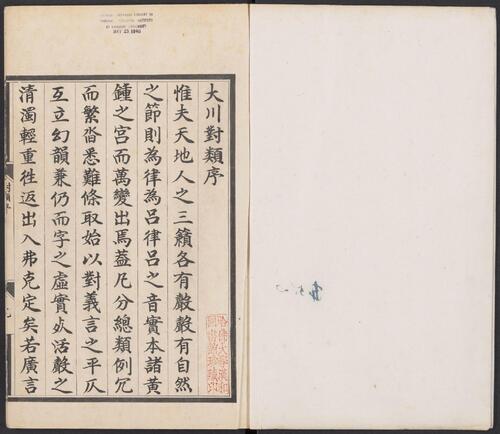 大川對類序
惟夫天地人之三籟各有聲聲有自然
之節則為律為呂律呂之音實本諸黃
鍾之宮而萬變出焉葢凡分總類例冗
而繁沓悉難條取始以對義言之平仄
互立幻韻兼仍而字之虛實死活聲之
清濁輕重徃返出入弗克定矣若廣言
對類序
MAY 23 1940